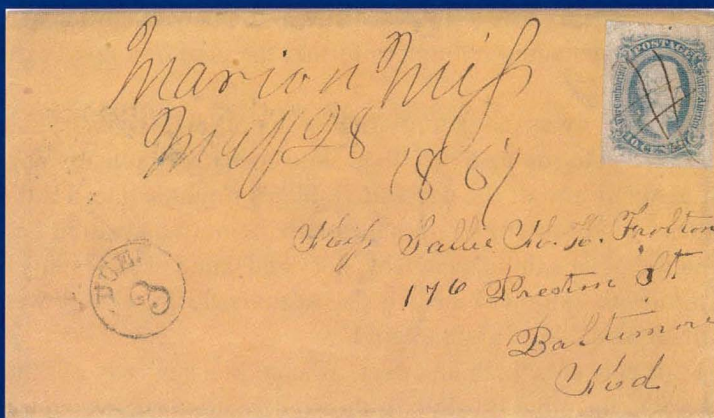 Marion Miss
May 28
POSTAGE
TEN CENTS
DUE. 3
Miss Sallie
176 Preston St
Baltimore
Md